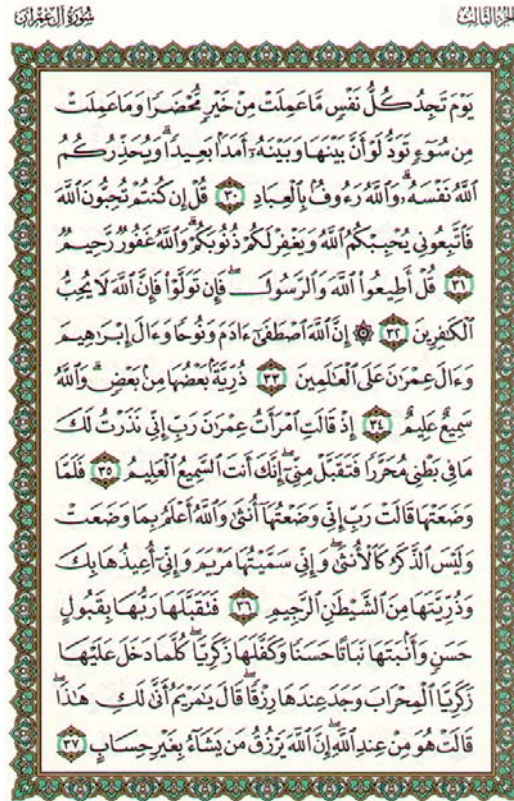 سُورَةُ آلِ عِمْرَانَ
الجُزْءُ الثَّالِثُ
يَوْمَ تَجِدُ كُلُّ نَفْسٍ مَّا عَمِلَتْ مِنْ خَيْرٍ مُّحْضَرًا وَمَا عَمِلَتْ
مِن سُوٓءٍ تَوَدُّ لَوْ أَنَّ بَيْنَهَا وَبَيْنَهُۥٓ أَمَدَۢا بَعِيدًا ۗ وَيُحَذِّرُكُمُ
ٱللَّهُ نَفْسَهُۥ ۗ وَٱللَّهُ رَءُوفُۢ بِٱلْعِبَادِ ٣٠ قُلْ إِن كُنتُمْ تُحِبُّونَ ٱللَّهَ
فَٱتَّبِعُونِى يُحْبِبْكُمُ ٱللَّهُ وَيَغْفِرْ لَكُمْ ذُنُوبَكُمْ ۗ وَٱللَّهُ غَفُورٌ رَّحِيمٌ
٣١ قُلْ أَطِيعُوا۟ ٱللَّهَ وَٱلرَّسُولَ ۖ فَإِن تَوَلَّوْا۟ فَإِنَّ ٱللَّهَ لَا يُحِبُّ
ٱلْكَٰفِرِينَ ٣٢ ۞ إِنَّ ٱللَّهَ ٱصْطَفَىٰٓ ءَادَمَ وَنُوحًا وَءَالَ إِبْرَٰهِيمَ
وَءَالَ عِمْرَٰنَ عَلَى ٱلْعَٰلَمِينَ ٣٣ ذُرِّيَّةَۢ بَعْضُهَا مِنۢ بَعْضٍ ۗ وَٱللَّهُ
سَمِيعٌ عَلِيمٌ ٣٤ إِذْ قَالَتِ ٱمْرَأَتُ عِمْرَٰنَ رَبِّ إِنِّى نَذَرْتُ لَكَ
مَا فِى بَطْنِى مُحَرَّرًا فَتَقَبَّلْ مِنِّىٓ ۖ إِنَّكَ أَنتَ ٱلسَّمِيعُ ٱلْعَلِيمُ ٣٥ فَلَمَّا
وَضَعَتْهَا قَالَتْ رَبِّ إِنِّى وَضَعْتُهَآ أُنثَىٰ وَٱللَّهُ أَعْلَمُ بِمَا وَضَعَتْ
وَلَيْسَ ٱلذَّكَرُ كَٱلْأُنثَىٰ ۖ وَإِنِّى سَمَّيْتُهَا مَرْيَمَ وَإِنِّىٓ أُعِيذُهَا بِكَ
وَذُرِّيَّتَهَا مِنَ ٱلشَّيْطَٰنِ ٱلرَّجِيمِ ٣٦ فَتَقَبَّلَهَا رَبُّهَا بِقَبُولٍ
حَسَنٍ وَأَنۢبَتَهَا نَبَاتًا حَسَنًا وَكَفَّلَهَا زَكَرِيَّا ۖ كُلَّمَا دَخَلَ عَلَيْهَا
زَكَرِيَّا ٱلْمِحْرَابَ وَجَدَ عِندَهَا رِزْقًا ۖ قَالَ يَٰمَرْيَمُ أَنَّىٰ لَكِ هَٰذَا ۖ
قَالَتْ هُوَ مِنْ عِندِ ٱللَّهِ ۖ إِنَّ ٱللَّهَ يَرْزُقُ مَن يَشَآءُ بِغَيْرِ حِسَابٍ ٣٧